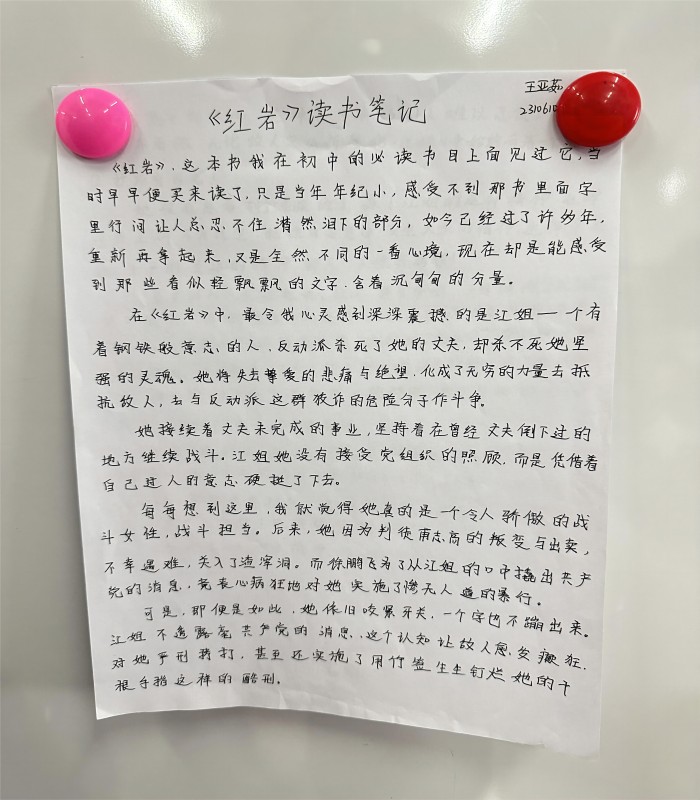 王亚茹
231061
《红岩》读书笔记
《红岩》,这本书我在初中的必读书目上面见过它,当
时早早便买来读了,只是当年年纪小,感受不到那书里面字
里行间让人总忍不住潸然泪下的部分,如今已经过了许多年,
重新再拿起来,又是全然不同的一番心境,现在却是能感受
到那些看似轻飘飘的文字,含着沉甸甸的分量。
在《红岩》中,最令我心灵感到深深震撼的是江姐——个有
着钢铁般意志的人,反动派杀死了她的丈夫,却杀不死她坚
强的灵魂。她将失去挚爱的悲痛与绝望,化成了无穷的力量去抵
抗敌人,去与反动派这群狡诈的危险分子作斗争。
她接续着丈夫未完成的事业,坚持着在曾经丈夫倒下过的
地方继续战斗。江姐她没有接受党组织的照顾,而是凭借着
自己过人的意志硬挺了下去。
每每想到这里,我就觉得她真的是一个令人骄傲的战
斗女性,战斗担当。后来,她因为判徒甫志高的叛变与出卖,
不幸遇难,关入了渣滓洞。而徐鹏飞为了从江姐的口中撬出共产
党的消息,竟丧心病狂地对她实施了惨无人道的暴行。
可是,即便是如此,她依旧咬紧牙关,一个字也不蹦出来。
江姐不透露毫共产党的消息,这个认知让敌人愈发癫狂,
对她严刑拷打,甚至还实施了用竹签生生钉烂她的十
根手指这样的酷刑。